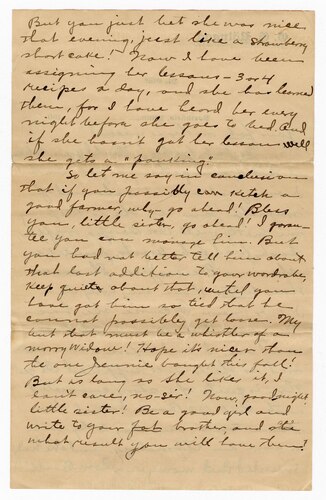 But you just bet she was nice
that evening, just like a strawberry
short cake! Now I have been
assigning her lessons - 3 or 4
recipes a day, and she has learned
them, for I have heard her every
night before she goes to bed and
if she hasn't got her lessons well
she gets a "panking."
So let me say in conclusion
that if you possibly can ketch a
good farmer, why - go ahead! Bless
you, little sister, go ahead! I
tee you can manage him. But
you had not better tell him about
that last addition to your wardrobe,
keep quiet about that, until you
have got him so tied that he
can not possibly get loose. My
but that must be a whistler of a
merry widow! Hope it's nicer than
the one Jennie bought this fall!
But as long as she likes it, I
don't care, no-sir! Now, good night
little sister! Be a good girl and
write to your fat brother, and
what result you will have then!